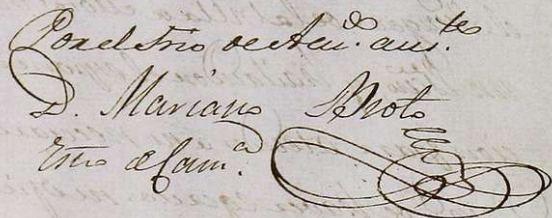 Por el Srio de Acu.do aus.te
D. Mariano Broto
Esno de Cam.a